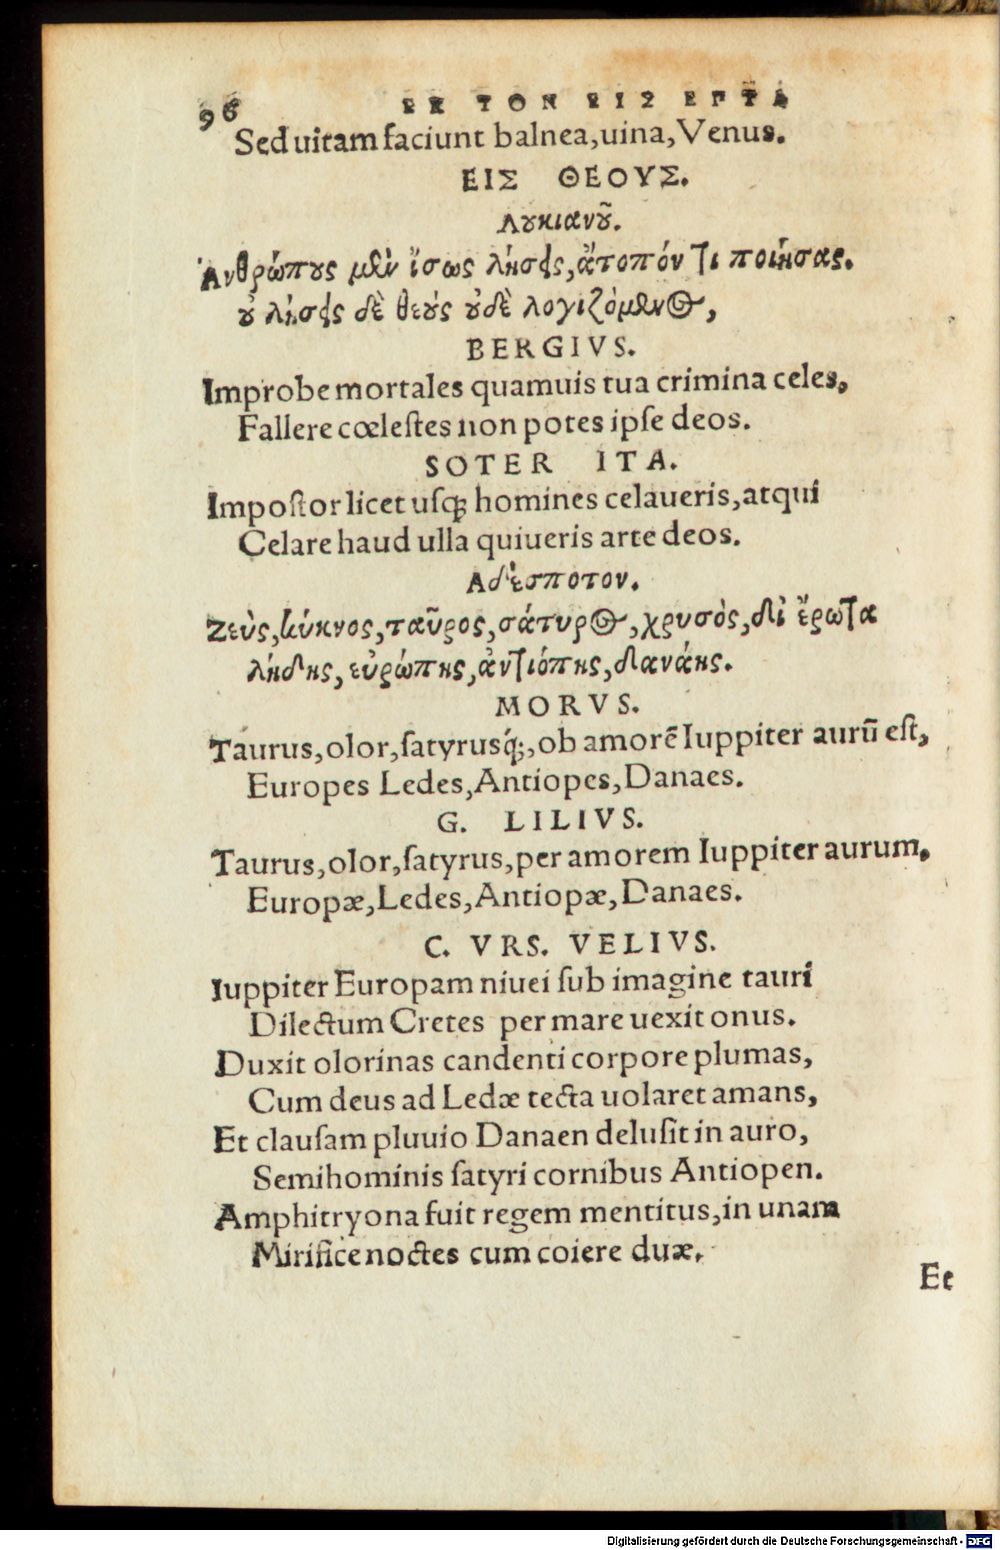 96 ΕΚ ΤΟΝ ΕΙΣ ΕΠΤΑ
Sed uitam faciunt balnea, uina, Venus.
ΕΙΣ ΘΕΟΥΣ.
Λουκιανοῦ.
Ἀνθρώπους μὲν ἴσως λήσεις, ἄτοπόν τι ποιήσας.
οὐ λήσεις δὲ θεοὺς οὐδὲ λογιζόμενος,
BERGIVS.
Improbe mortales quamuis tua crimina celes,
Fallere cœleſtes non potes ipſe deos.
SOTER ITA.
Impoſtor licet uſq; homines celaueris, atqui
Celare haud ulla quiueris arte deos.
Αδέσποτον.
Ζεὺς, κύκνος, ταῦρος, σάτυρος, χρυσὸς, δι' ἔρωτα
λήδης, εὐρώπης, ἀντιόπης, δανάης.
MORVS.
Taurus, olor, ſatyrusq́;, ob amorē Iuppiter aurū eſt,
Europes Ledes, Antiopes, Danaes.
G. LILIVS.
Taurus, olor, ſatyrus, per amorem Iuppiter aurum,
Europæ, Ledes, Antiopæ, Danaes.
C. VRS. VELIVS.
Iuppiter Europam niuei ſub imagine tauri
Dilectum Cretes per mare uexit onus.
Duxit olorinas candenti corpore plumas,
Cum deus ad Ledæ tecta uolaret amans,
Et clauſam pluuio Danaen deluſit in auro,
Semihominis ſatyri cornibus Antiopen.
Amphitryona fuit regem mentitus, in unam
Mirifice noctes cum coiere duæ.
Et
Digitalisierung gefördert durch die Deutsche Forschungsgemeinschaft - DFG